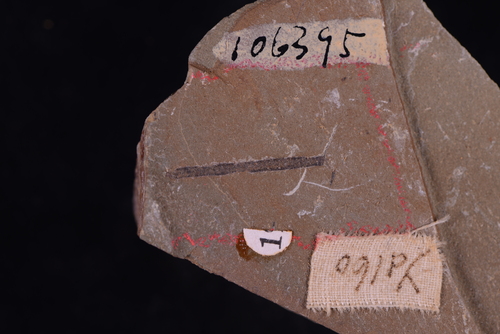 106395
1
Ya160